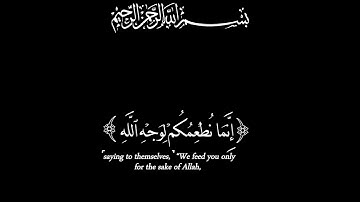 بِسْمِ اللَّهِ الرَّحْمَٰنِ الرَّحِيمِ
﴿ إِنَّمَا نُطْعِمُكُمْ لِوَجْهِ اللَّهِ ﴾
˹saying to themselves,˺ “We feed you only
for the sake of Allah,